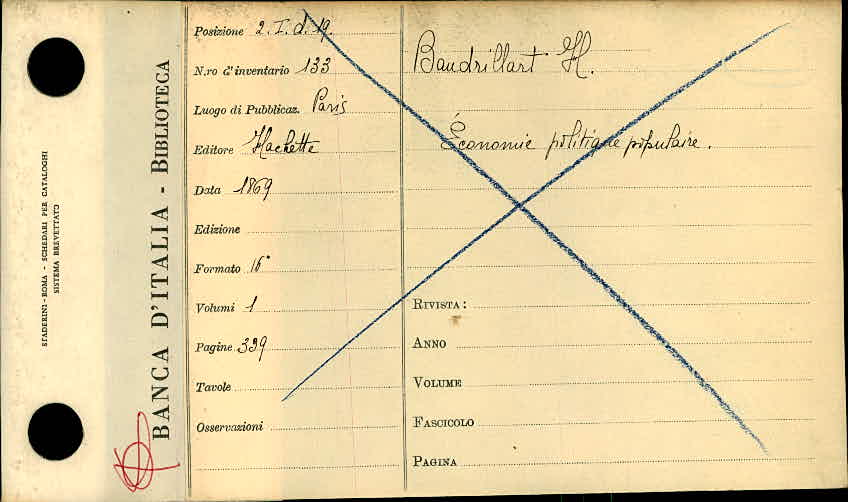 STADERINI - ROMA - SCHEDARI PER CATALOGHI
SISTEMA BREVETTATO
BANCA D'ITALIA - BIBLIOTECA
Posizione 2. I. d. 19.
N.ro d'inventario 133
Luogo di Pubblicaz. Paris
Editore Hachette
Data 1869
Edizione
Formato 16°
Volumi 1
Pagine 339
Tavole
Osservazioni
Baudrillart H.
Économie politique populaire.
RIVISTA:
ANNO
VOLUME
FASCICOLO
PAGINA